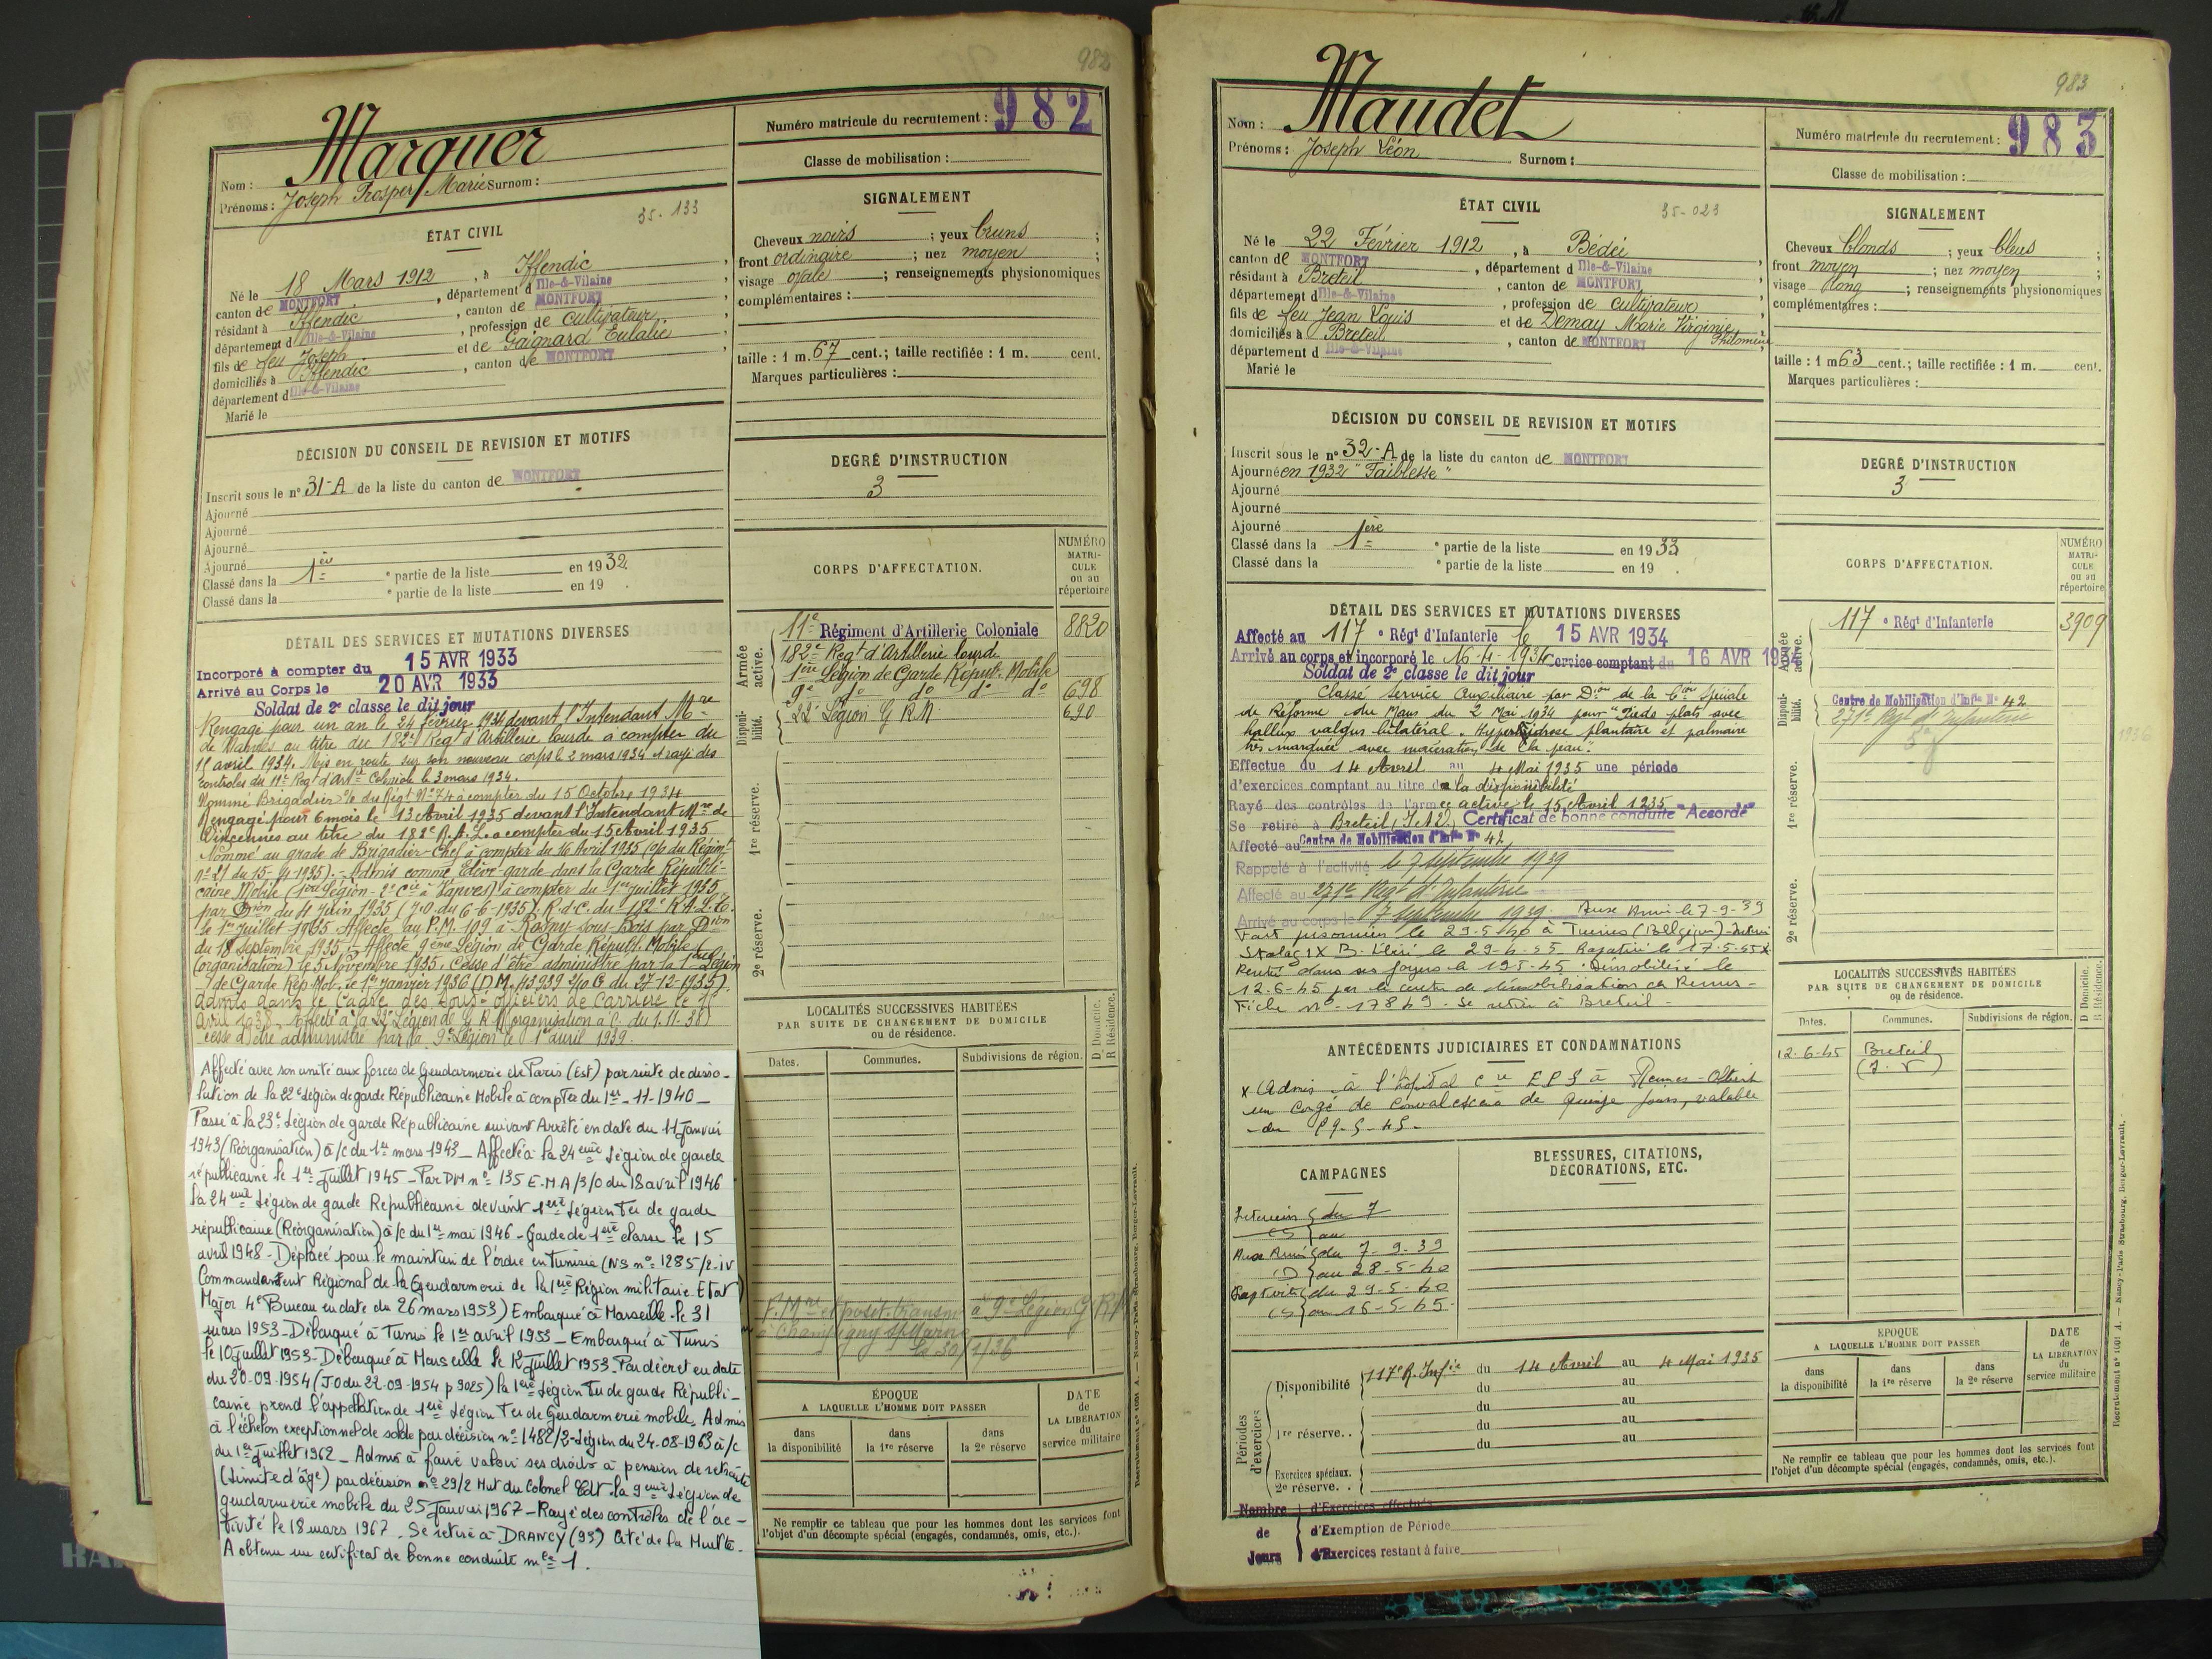 982
Marquer
Nom :
Prénoms : Joseph Prosper Marie Surnom :
Numéro matricule du recrutement : 982
Classe de mobilisation :
35-133
ÉTAT CIVIL
Né le 18 Mars 1912, à Iffendic
canton de MONTFORT, département d Ille-&-Vilaine
résidant à Iffendic, canton de MONTFORT
département d Ille-&-Vilaine, profession de cultivateur
fils de feu Joseph et de Gaignard Eulalie
domiciliés à Iffendic, canton de MONTFORT
département d Ille-&-Vilaine
Marié le
SIGNALEMENT
Cheveux noirs ; yeux bruns ;
front ordinaire ; nez moyen ;
visage ovale ; renseignements physionomiques
complémentaires :
taille : 1 m. 67 cent.; taille rectifiée : 1 m. cent.
Marques particulières :
DÉCISION DU CONSEIL DE REVISION ET MOTIFS
Inscrit sous le nº 31-A de la liste du canton de MONTFORT
Ajourné
Ajourné
Ajourné
Ajourné
Classé dans la 1ère * partie de la liste en 1932
Classé dans la * partie de la liste en 19 .
DEGRÉ D'INSTRUCTION
3
CORPS D'AFFECTATION.
NUMÉRO MATRICULE ou au répertoire
Armée active.
11e Régiment d'Artillerie Coloniale 8820
182e Regt d'Artillerie lourde
1ère Légion de Garde Républ. Mobile
9e do do do do 698
Disponibilité.
22e Légion G R M 690
1re réserve.
2e réserve.
DÉTAIL DES SERVICES ET MUTATIONS DIVERSES
Incorporé à compter du 15 AVR 1933
Arrivé au Corps le 20 AVR 1933
Soldat de 2e classe le dit jour
Rengagé pour un an le 24 février 1934 devant l'Intendant Mre
de Vannes au titre du 182e Regt d'Artillerie lourde à compter du
15 avril 1934. Mis en route sur son nouveau corps le 2 mars 1934 et rayé des
contrôles du 11e Regt d'Artie Coloniale le 3 mars 1934.
Nommé Brigadier o/o du Régt Nº 74 à compter du 15 Octobre 1934
Rengagé pour 6 mois le 13 Avril 1935 devant l'Intendant Mre de
Vincennes au titre du 182e R.A.L. à compter du 15 Avril 1935
Nommé au grade de Brigadier-Chef à compter du 16 Avril 1935 (o/o du Régimt
nº 21 du 15-4-1935). - Admis comme Elève-garde dans la Garde Républi-
caine Mobile (1ère Légion - 2e Cie à Vanves) à compter du 1er Juillet 1935
par Dion du 4 Juin 1935 (J.O. du 6-6-1935). R.d.C. du 182e R.A.L.
le 1er Juillet 1935. Affecté au P.M. 109 à Rosny-sous-Bois par Dion
du 18 Septembre 1935. - Affecté 9ème Légion de Garde Républ. Mobile
(organisation) le 5 Novembre 1935. Cesse d'être administré par la 1ère Légion
de Garde Rep. Mob. le 1er janvier 1936 (D.M. 43939 2/10 G. du 27-12-1935).
admis dans le Cadre des sous-officiers de carrière le 1er
avril 1938. Affecté à la 22e Légion de G R M (organisation à c. du 1.11.38)
cesse d'être administré par la 9e Légion le 1er avril 1939.
Affecté avec son unité aux forces de Gendarmerie de Paris (Est) par suite de disso-
lution de la 22e Légion de garde Républicaine Mobile à compter du 1er-11-1940 _
Passé à la 23e Légion de garde Républicaine suivant Arrêté en date du 11 Janvier
1943 (Réorganisation) à/c du 1er mars 1943 _ Affecté à la 24ème Légion de garde
républicaine le 1er Juillet 1945 - Par DM nº 135 E.M.A/3/O du 18 avril 1946
la 24ème Légion de garde Républicaine devient 1ère Légion Ter de garde
républicaine (Réorganisation) à/c du 1er mai 1946 - Garde de 1ère classe le 15
avril 1948 - Déplacé pour le maintien de l'ordre en Tunisie (NS nº 1285/2-IV
Commandement Régional de la Gendarmerie de la 1ère Région militaire. Etat
Major 4e Bureau en date du 26 mars 1953) Embarqué à Marseille le 31
mars 1953 - Débarqué à Tunis le 1er avril 1953 _ Embarqué à Tunis
le 10 Juillet 1953 - Débarqué à Marseille le 12 Juillet 1953. Par décret en date
du 20-09-1954 (JO du 22-09-1954 p 9025) la 1ère Légion Ter de garde Républi-
caine prend l'appellation de 1ère Légion Ter de Gendarmerie mobile. Admis
à l'échelon exceptionnel de solde par décision nº 1482/2-Légion du 24-08-1963 à/c
du 1er Juillet 1962 _ Admis à faire valoir ses droits à pension de retraite
(Limite d'âge) par décision nº 29/2 Mut du Colonel Cdt la 9ème Légion de
gendarmerie mobile du 25 Janvier 1967 - Rayé des contrôles de l'ac-
tivité le 18 mars 1967. Se retire à DRANCY (93) Cité de la Muette.
A obtenu un certificat de bonne conduite mle 1.
LOCALITÉS SUCCESSIVES HABITÉES
PAR SUITE DE CHANGEMENT DE DOMICILE
ou de résidence.
Dates. Communes. Subdivisions de région. D. Domicile. R. Résidence.
F. Mre et posit. transm à 9e Légion G R M
à Champigny s/Marne
le 30/1/36
ÉPOQUE
A LAQUELLE L'HOMME DOIT PASSER
dans la disponibilité dans la 1re réserve dans la 2e réserve
DATE de LA LIBÉRATION du service militaire
Ne remplir ce tableau que pour les hommes dont les services font
l'objet d'un décompte spécial (engagés, condamnés, omis, etc.).
Recrutement nº 1001 A. — Nancy-Paris-Strasbourg, Berger-Levrault.
983
Nom : Maudet
Prénoms : Joseph Léon Surnom :
Numéro matricule du recrutement : 983
Classe de mobilisation :
ÉTAT CIVIL
35-023
Né le 22 Février 1912, à Bédée
canton de MONTFORT, département d Ille-&-Vilaine
résidant à Breteil, canton de MONTFORT
département d Ille-&-Vilaine, profession de cultivateur
fils de feu Jean Louis et de Demay Marie Virginie Philomène
domiciliés à Breteil, canton de MONTFORT
département d Ille-&-Vilaine
Marié le
SIGNALEMENT
Cheveux blonds ; yeux bleus ;
front moyen ; nez moyen ;
visage long ; renseignements physionomiques
complémentaires :
taille : 1 m 63 cent.; taille rectifiée : 1 m. cent.
Marques particulières :
DÉCISION DU CONSEIL DE REVISION ET MOTIFS
Inscrit sous le nº 32-A de la liste du canton de MONTFORT
Ajourné en 1932 "Faiblesse"
Ajourné
Ajourné
Ajourné
Classé dans la 1ère * partie de la liste en 1933
Classé dans la * partie de la liste en 19 .
DEGRÉ D'INSTRUCTION
3
CORPS D'AFFECTATION.
NUMÉRO MATRICULE ou au répertoire
Armée active.
117 e Régt d'Infanterie 3909
Disponibilité.
Centre de Mobilisation d'Infie Nº 42
271e Regt d'Infanterie
1936
1re réserve.
2e réserve.
DÉTAIL DES SERVICES ET MUTATIONS DIVERSES
Affecté au 117 e Régt d'Infanterie le 15 AVR 1934
Arrivé au corps et incorporé le 16-4-1934 Service comptant du 16 AVR 1934
Soldat de 2e classe le dit jour
Classé Service Auxiliaire par Dion de la Cion Spéciale
de Réforme du Mans du 2 Mai 1934 pour "Pieds plats avec
hallux valgus bilatéral. Hyperhidrose plantaire et palmaire
très marquée avec macération de la peau".
Effectue du 14 Avril au 4 Mai 1935 une période
d'exercices comptant au titre de la disponibilité
Rayé des contrôles de l'armée active le 15 Avril 1935
Se retire à Breteil (I.&V.) Certificat de bonne conduite "Accordé"
Affecté au Centre de Mobilisation d'Infie Nº 42
Rappelé à l'activité le 7 septembre 1939
Affecté au 271e Regt d'Infanterie
Arrivé au corps le 7 septembre 1939. Aux Armées le 7-9-39
Fait prisonnier le 29-5-40 à (Belgique) - Interné
Stalag IX B. Libéré le 29-4-45 Rapatrié le 17-5-45 x
Rentré dans ses foyers le 19-5-45. Démobilisé le
12-6-45 par le centre de démobilisation de Rennes -
Fiche nº 17849. Se retire à Breteil -
ANTÉCÉDENTS JUDICIAIRES ET CONDAMNATIONS
x Admis à l'hôpital à Rennes - Obtient
un congé de convalescence de quinze jours, valable
du 19-5-45 -
CAMPAGNES
du 7
au
Aux Armées du 7-9-39
(D) au 28-5-40
Captivité du 29-5-40
(S) au 16-5-45
BLESSURES, CITATIONS,
DÉCORATIONS, ETC.
Périodes d'exercices
Disponibilité 117e R. Infie du 14 Avril au 4 Mai 1935
du au
du au
1re réserve. . du au
du au
Exercices spéciaux.
2e réserve. .
Nombre de Jours
d'Exercices effectués
d'Exemption de Période
d'Exercices restant à faire
LOCALITÉS SUCCESSIVES HABITÉES
PAR SUITE DE CHANGEMENT DE DOMICILE
ou de résidence.
Dates. Communes. Subdivisions de région. D. Domicile. R. Résidence.
12-6-45 Breteil
(I. V)
EPOQUE
A LAQUELLE L'HOMME DOIT PASSER
dans la disponibilité dans la 1re réserve dans la 2e réserve
DATE de LA LIBÉRATION du service militaire
Ne remplir ce tableau que pour les hommes dont les services font
l'objet d'un décompte spécial (engagés, condamnés, omis, etc.).
Recrutement nº 1001 A. — Nancy-Paris Strasbourg, Berger-Levrault.